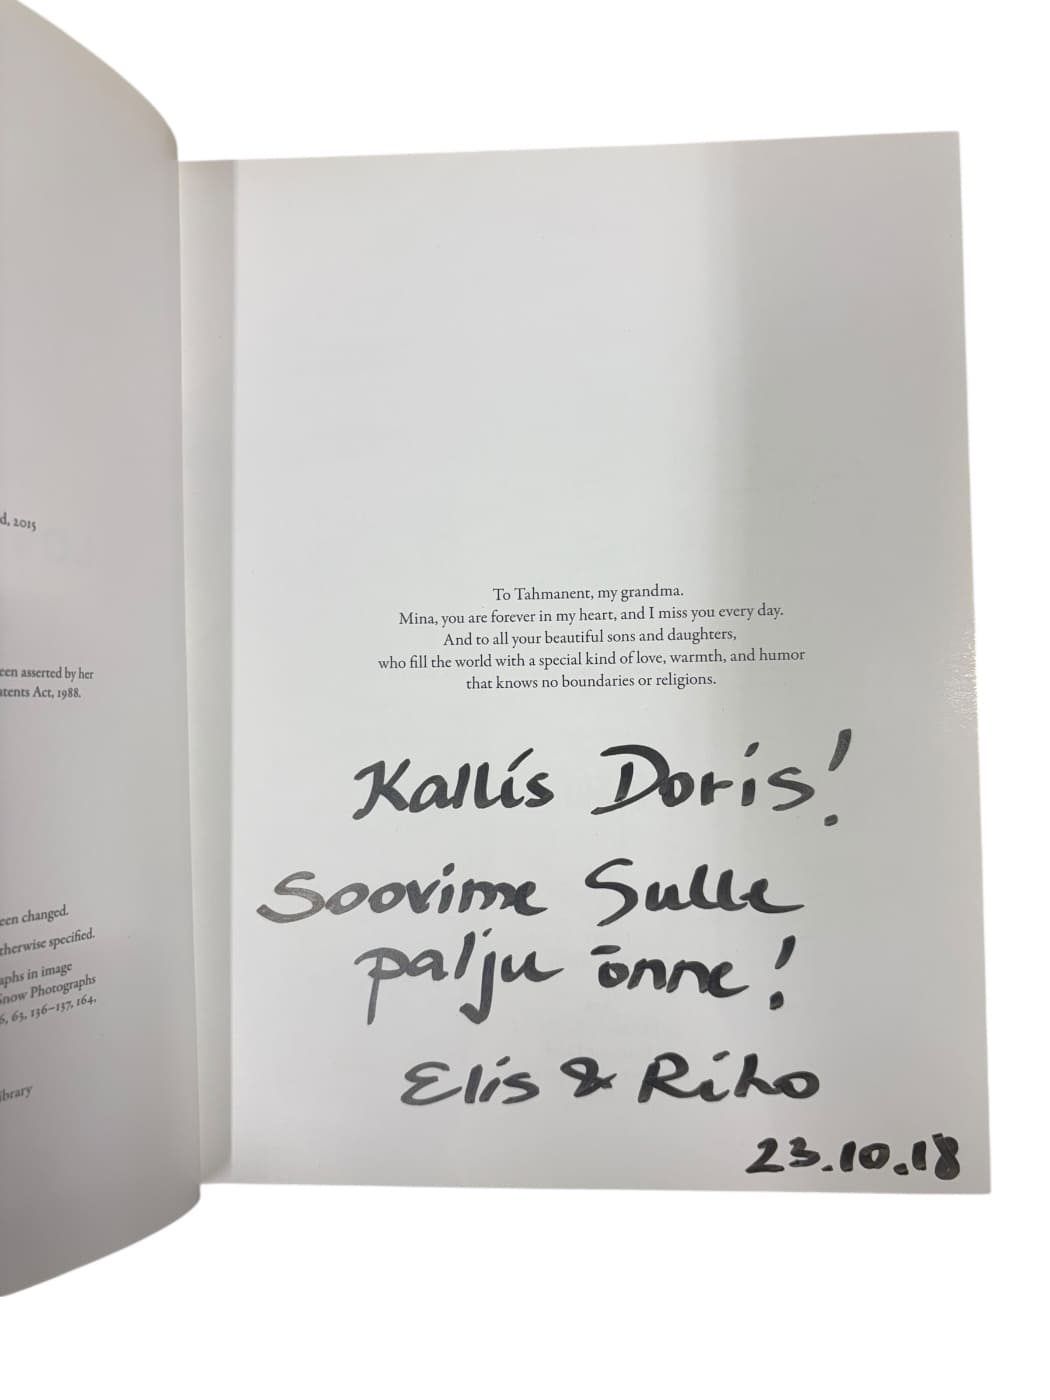 d, 2015
een asserted by her
atents Act, 1988.
een changed.
therwise specified.
aphs in image
Snow Photographs
6, 63, 136–137, 164,
ibrary
To Tahmanent, my grandma.
Mina, you are forever in my heart, and I miss you every day.
And to all your beautiful sons and daughters,
who fill the world with a special kind of love, warmth, and humor
that knows no boundaries or religions.
Kallis Doris!
Soovime Sulle
palju õnne!
Elis & Riho
23.10.18